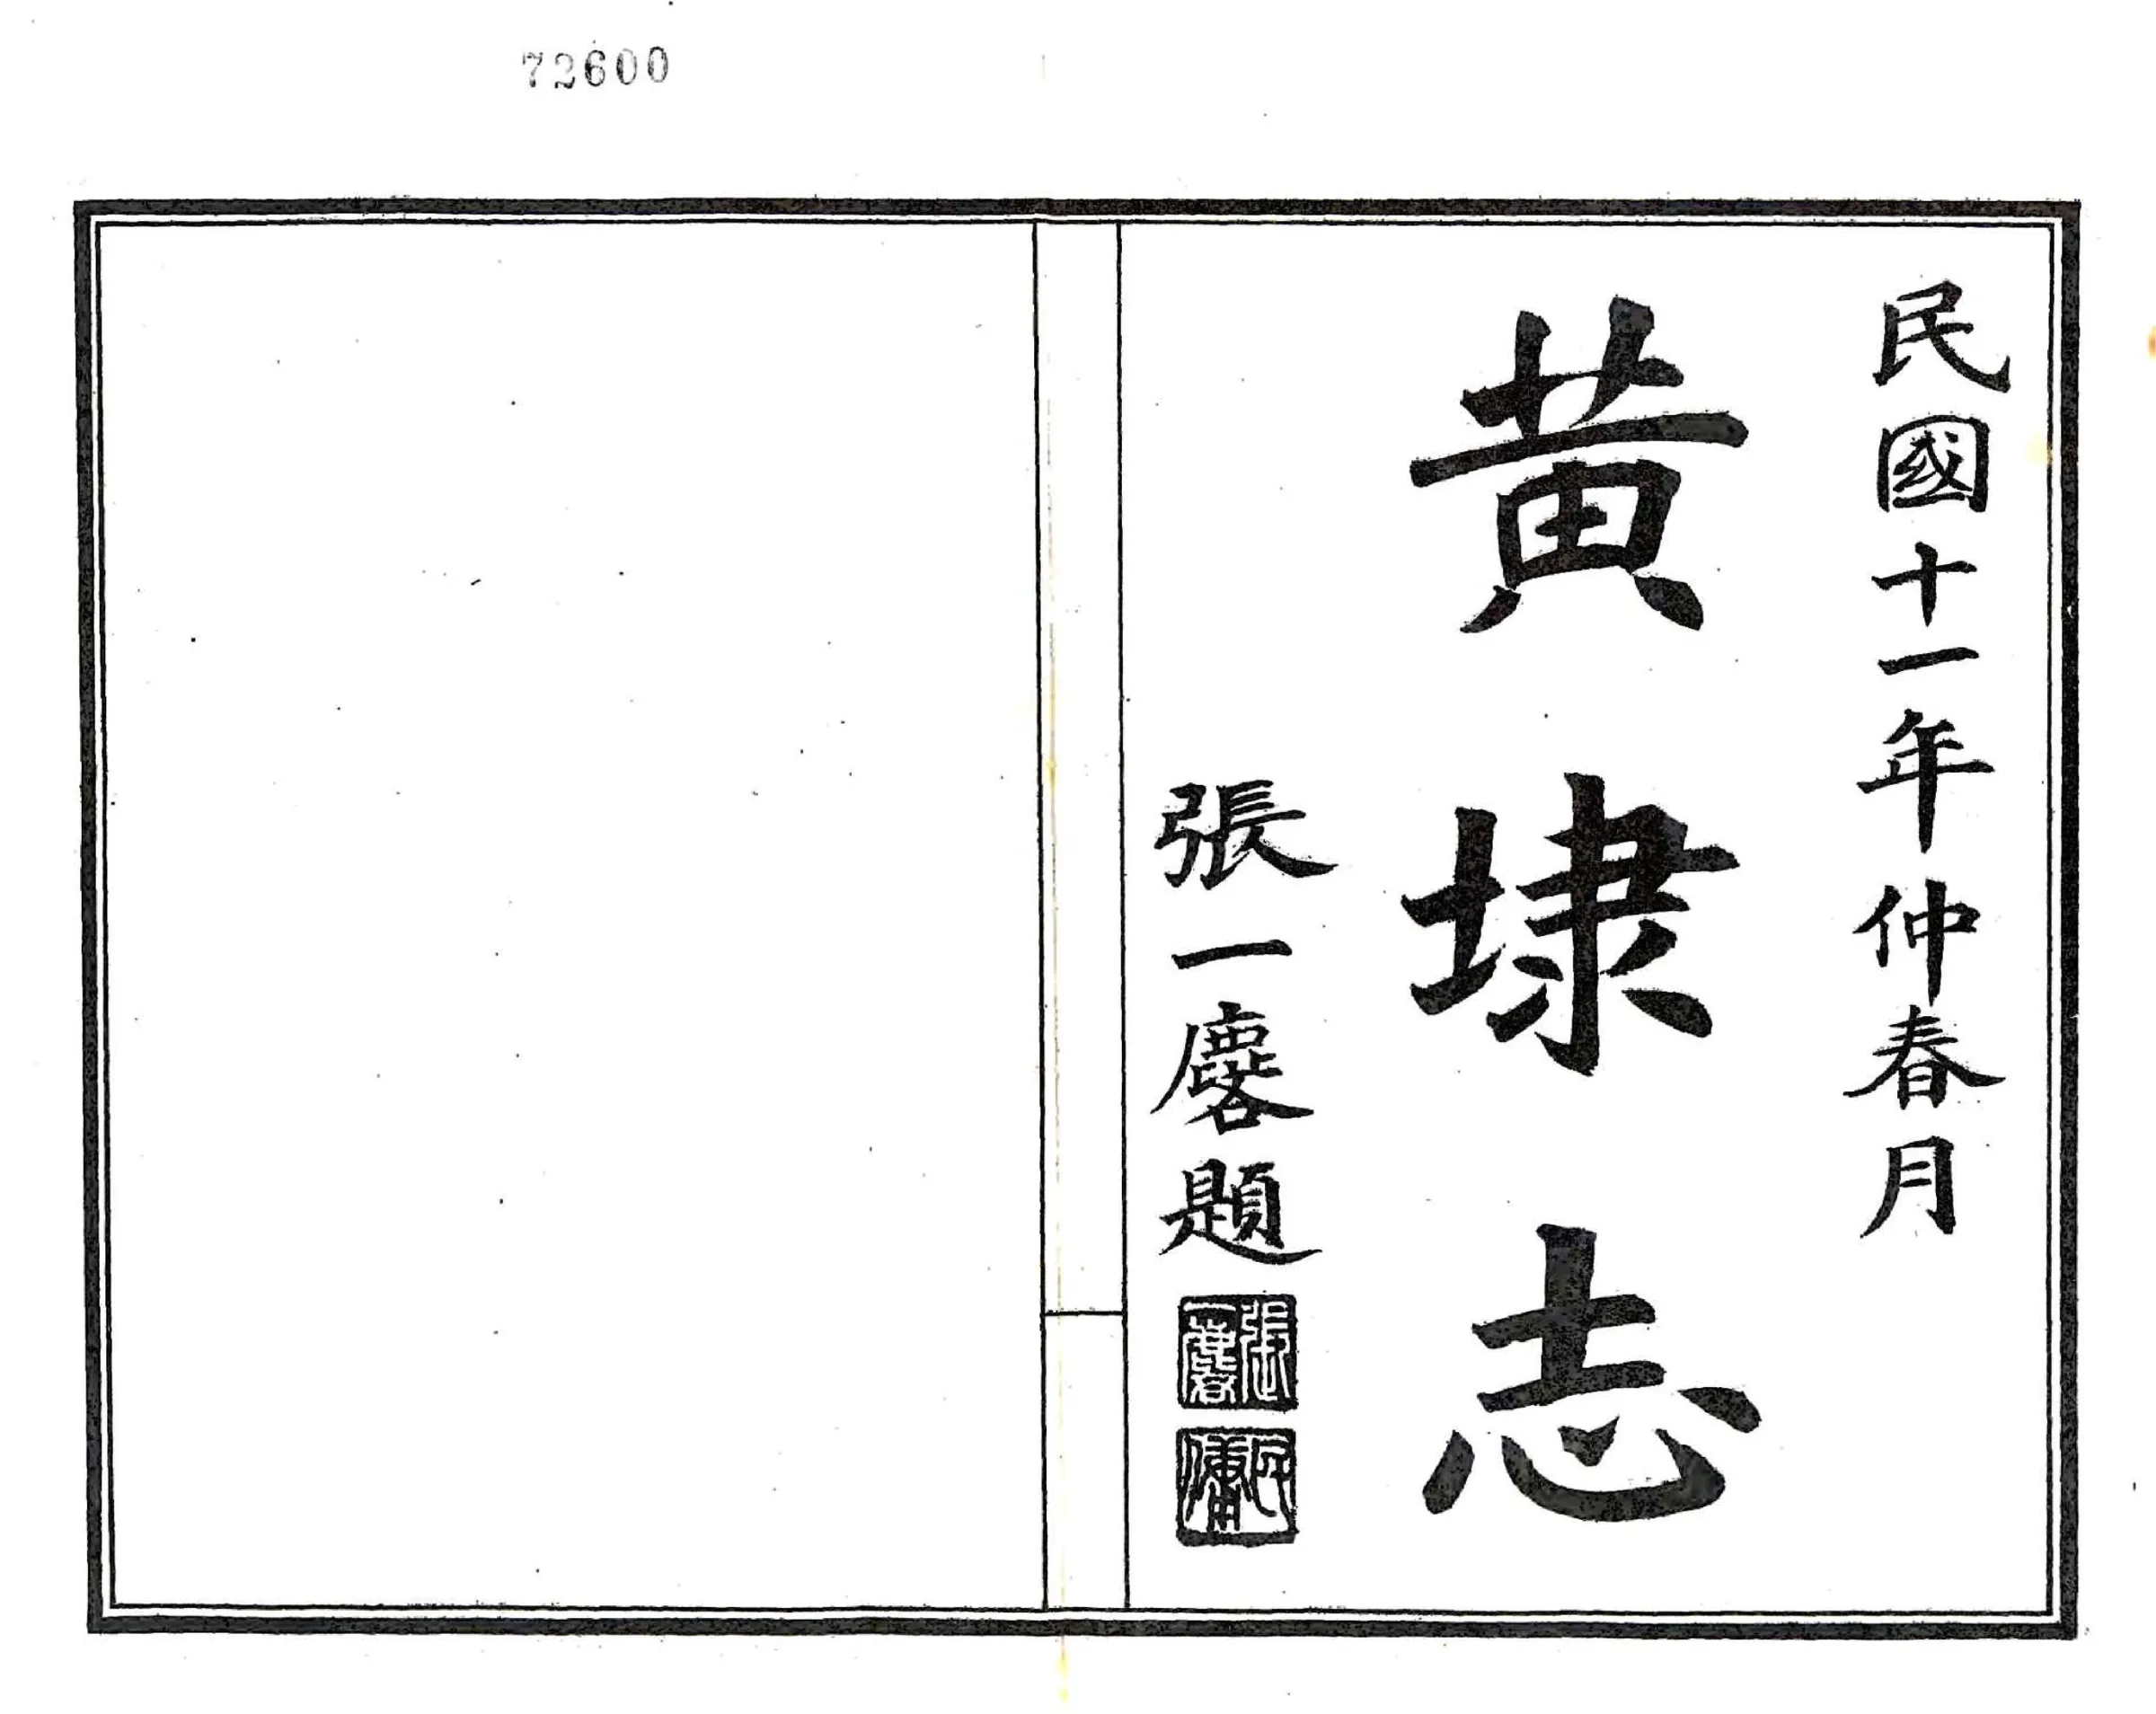 72600
民國十一年仲春月
黄埭志
張一麐題
張一麐
民傭